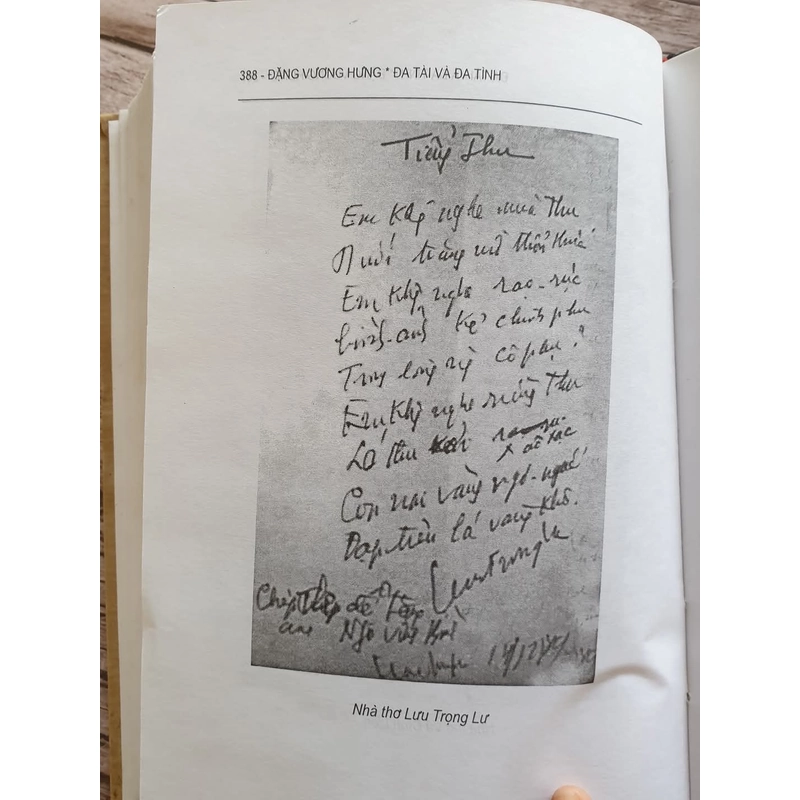 388 - ĐẶNG VƯƠNG HƯNG * ĐA TÀI VÀ ĐA TÌNH
Tiếng Thu
Em khg nghe mùa Thu
Dưới trăng mờ thổn thức
Em không nghe rạo-rực
hình-ảnh kẻ chinh phu
Trong lòng người cô phụ?
Em không nghe rừng Thu
Lá thu kêu xào xạc
Con nai vàng ngơ-ngác
Đạp trên lá vàng khô.
Lưutrọnglư
Chép để tặng
anh Ngô
Nhà thơ Lưu Trọng Lư